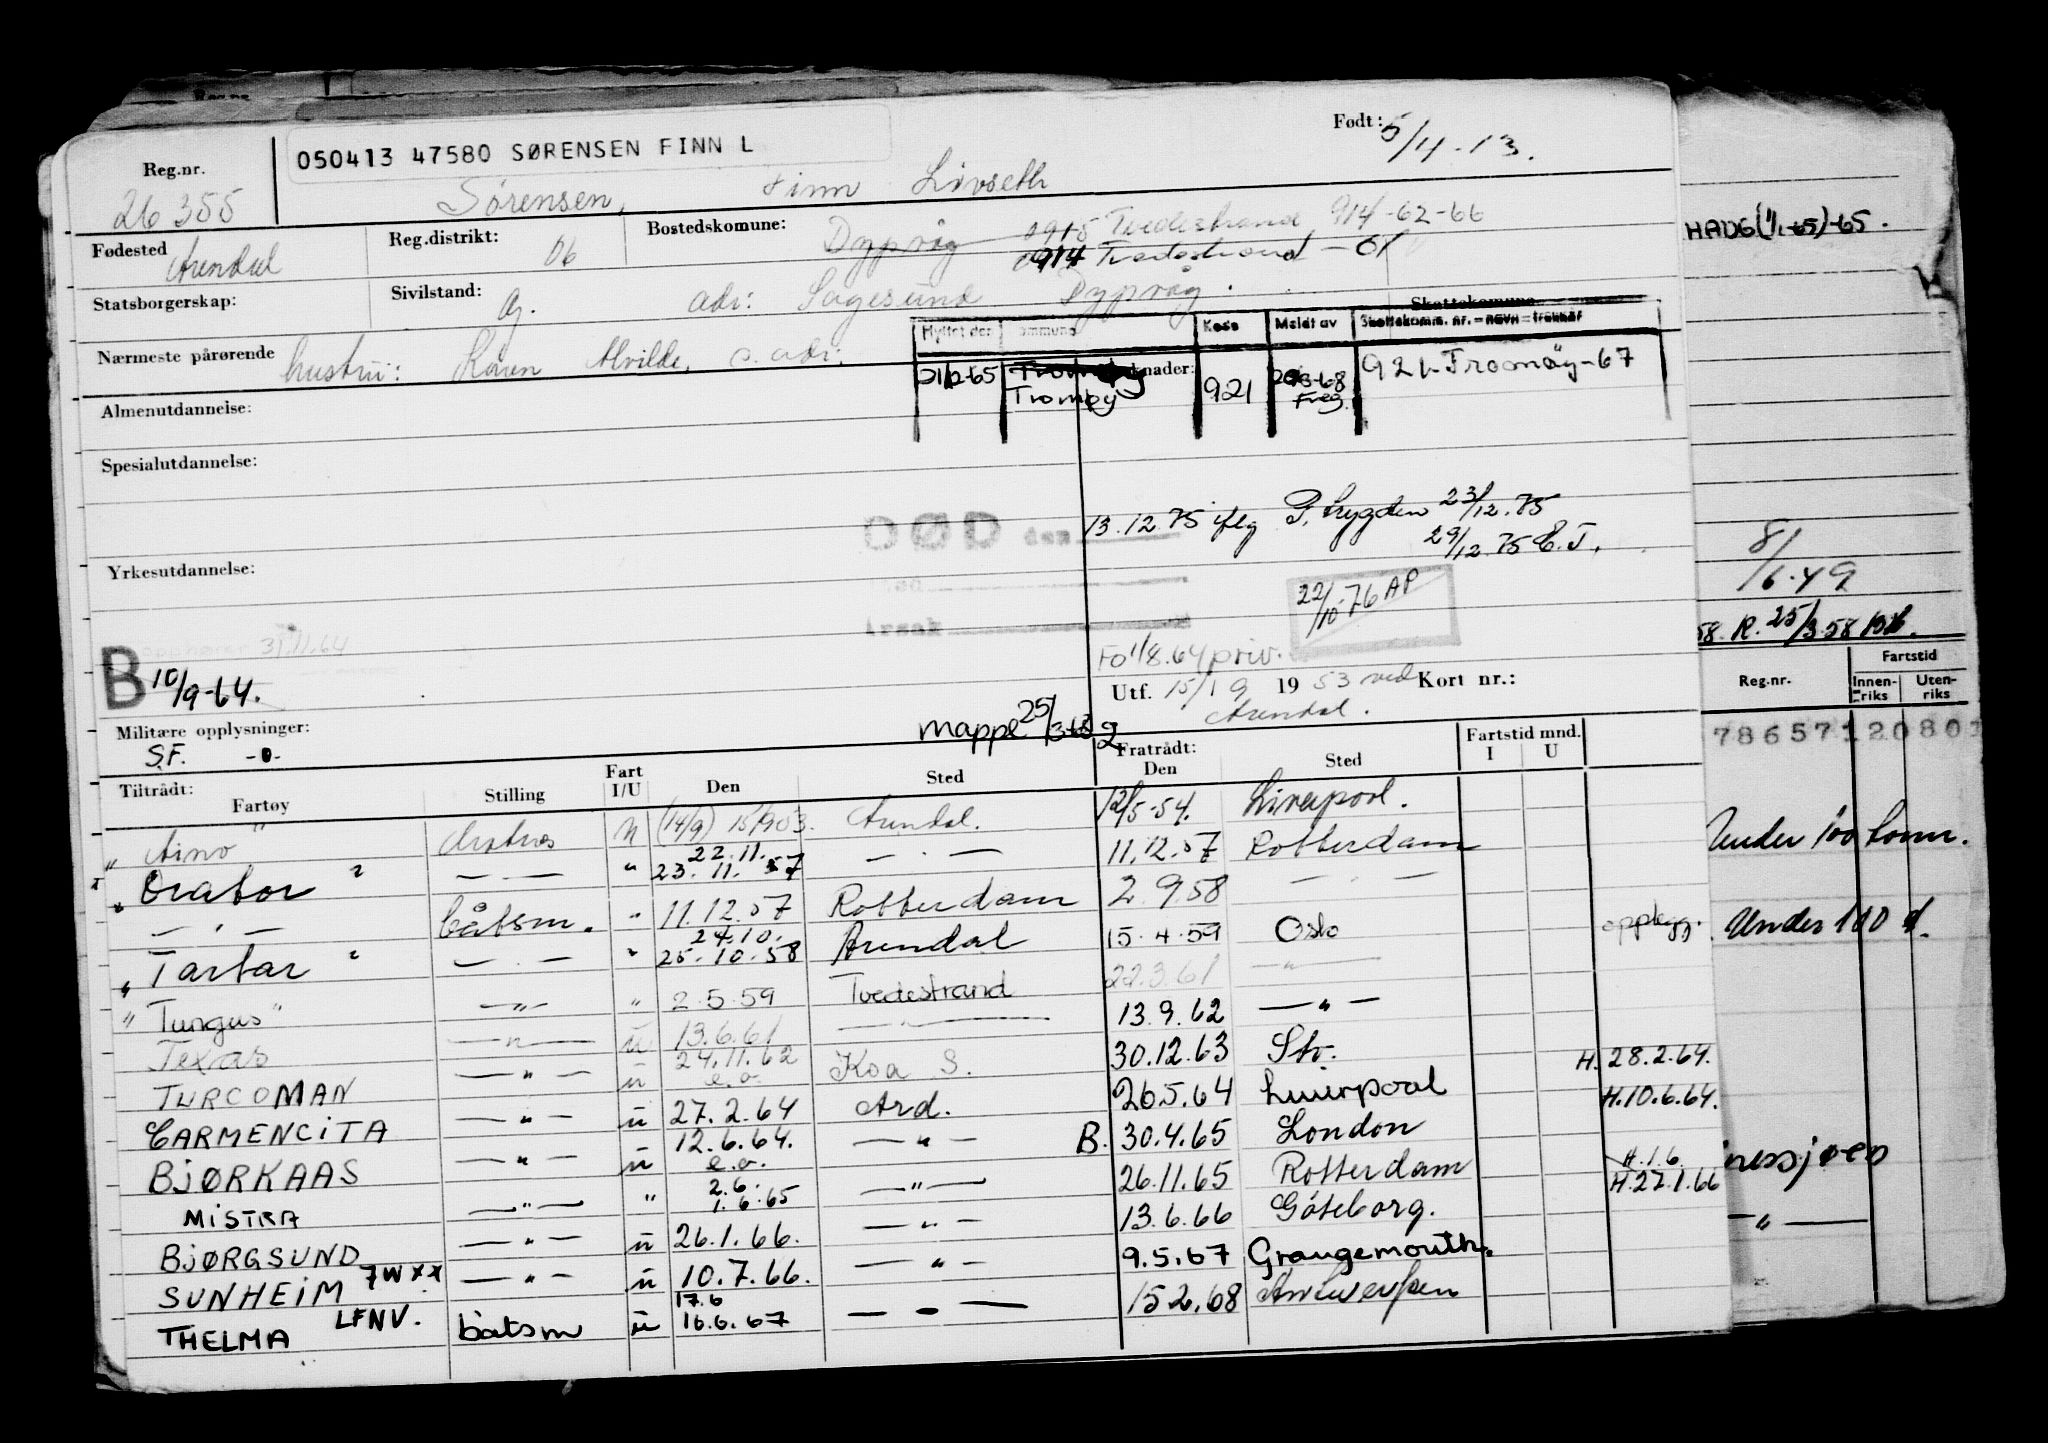 Reg.nr.
26355
050413 47580 SØRENSEN FINN L
Født: 5/4-13.
Sörensen, Finn Livseth
Fødested Arendal
Reg.distrikt: 06
Bostedskomune: Dypvåg 0915 Tvedestrand 914-62-66
0914 Tvedestrand -61
Statsborgerskap:
Sivilstand: g.
adr: Sagesund Dypvåg.
HADG(1/1-65)-65.
Skattekomune
Flyttet den
Kode
Meldt av
Skattekomm. nr.
Nærmeste pårørende hustru: Karen Alvilde, s. adr.
Tromøy
Tromøy
921
Freg.
921 Tromøy-67
Almenutdannelse:
Spesialutdannelse:
DØD den 13.12.75 iflg 23/12.75
29/12.75 E.J.
Yrkesutdannelse:
Årsak
22/10-76 AP
8/6.49
58. R. 25/3.58
opphører 31.11.64
B 10/9-64.
Fo 1/8.64 priv.
Utf. 15/9 1953 ved Kort nr.:
Arendal.
Reg.nr.
Fartstid
Innen-riks
Uten-riks
Militære opplysninger:
S.F. -0-
Mappe 25/3-63
78657120801
Tiltrådt:
Fartøy
Stilling
Fart I/U
Den
Sted
Fratrådt:
Den
Sted
Fartstid mnd.
I
U
" Aino " (14/9) 15/9 53. Arendal. 12/5-54. Liverpool.
" Orator " — . — " 22.11. 23.11.57 — . — 11.12.57 Rotterdam
Under 100 tonn.
— . — båtsm. " 11.12.57 Rotterdam 2.9.58 — . —
" Tartar " — . — " 24.10. 25.10.58 Arendal 15.4.59 Oslo opplegg. Under 100 t.
" Tungus " — " — " 2.5.59 Tvedestrand 22.3.61 — " —
Texas — " — u 13.6.61 — " — 13.9.62 — " —
TURCOMAN — " — u 24.11.62 e.o. Koa S. 30.12.63 Stv. H. 28.2.64.
CARMENCITA — " — u 27.2.64 Ard. 26.5.64 Liverpool H.10.6.64.
BJØRKAAS — " — u 12.6.64. e.o. — " — B. 30.4.65 London
MISTRA — " — " 2.6. 1.6.65 — " — 26.11.65 Rotterdam H.1.6. H.27.1.66
BJØRGSUND — " — u 26.1.66. — " — 13.6.66 Göteborg.
— " —
SUNHEIM — " — u 10.7.66. — " — 9.5.67 Grangemouth.
THELMA LFNV. båtsm u 17.6 16.6.67 — " — 15.2.68 Antwerpen